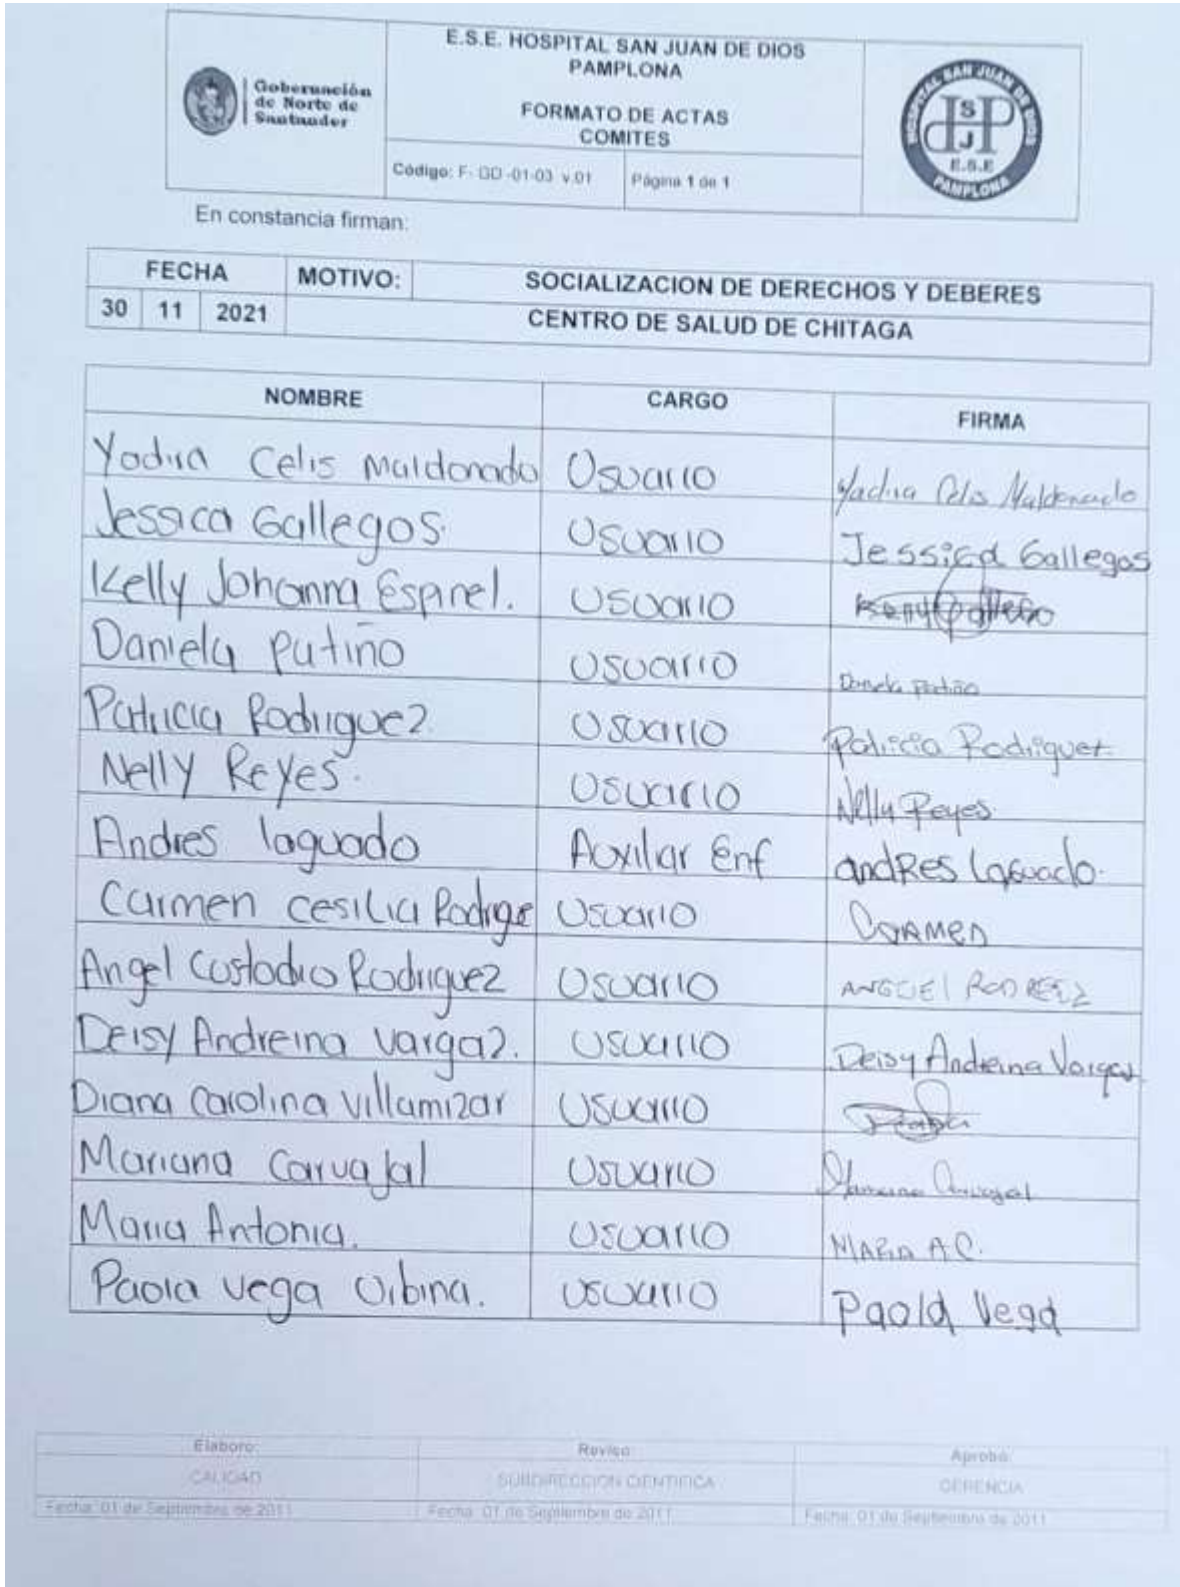 Gobernación
de Norte de
Santander
E.S.E. HOSPITAL SAN JUAN DE DIOS
PAMPLONA
FORMATO DE ACTAS
COMITES
Código: F- GD -01-03 v.01 Página 1 de 1
HOSPITAL SAN JUAN DE DIOS
S
J
E.S.E
PAMPLONA
En constancia firman:
FECHA MOTIVO: SOCIALIZACION DE DERECHOS Y DEBERES
30 11 2021 CENTRO DE SALUD DE CHITAGA
NOMBRE CARGO FIRMA
Yadira Celis Maldonado Usuario Yadira Celis Maldonado
Jessica Gallegos. Usuario Jessica Gallegos
Kelly Johanna Espinel. Usuario
Daniela Patiño Usuario Daniela Patiño
Patricia Rodriguez Usuario Patricia Rodriguez
Nelly Reyes. Usuario Nelly Reyes.
Andres laguado Auxiliar Enf andRes Laguado.
Carmen cesilia Rodrigue Usuario CARMEn
Angel Custodio Rodriguez Usuario ANGUEl
Deisy Andreina Vargaz. Usuario Deisy Andreina Vargas
Diana Carolina Villamizar Usuario
Mariana Carvajal Usuario Mariana Carvajal
Maria Antonia. Usuario MARIA A.C.
Paola Vega Urbina. Usuario Paola Vega
Elaboro: Reviso: Aprobó:
CALIDAD SUBDIRECCION CIENTIFICA GERENCIA
Fecha: 01 de Septiembre de 2011 Fecha: 01 de Septiembre de 2011 Fecha: 01 de Septiembre de 2011